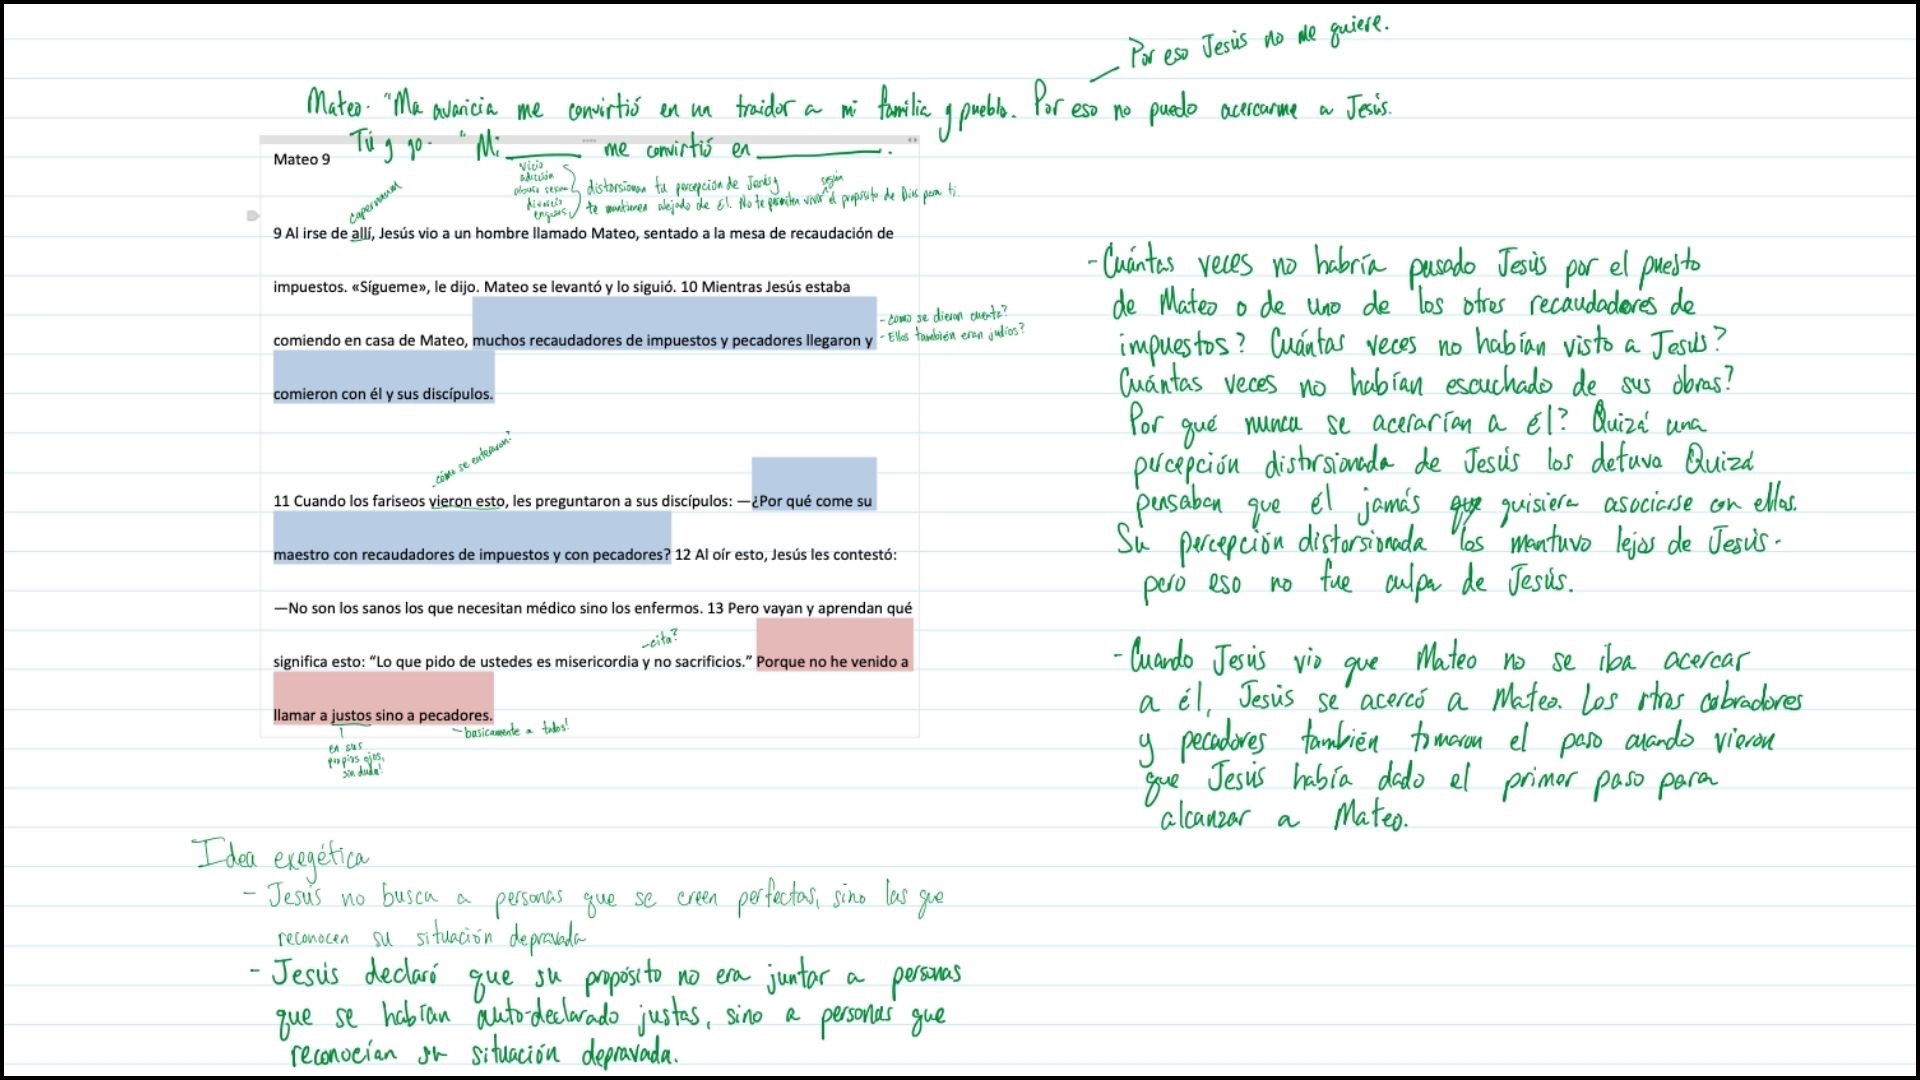 Por eso Jesús no me quiere.
Mateo. "Ma avaricia me convirtió en un traidor a mi familia y pueblo. Por eso no puedo acercarme a Jesús.
Tú y yo. "Mi ________ me convirtió en ____________.
Mateo 9
vicio
adicción
abuso sexual
divorcio
engaños
distorsionan tu percepción de Jesús y
te mantienen alejado de Él. No te permiten vivir según el propósito de Dios para ti.
capernaum
9 Al irse de allí, Jesús vio a un hombre llamado Mateo, sentado a la mesa de recaudación de
impuestos. «Sígueme», le dijo. Mateo se levantó y lo siguió. 10 Mientras Jesús estaba
comiendo en casa de Mateo, muchos recaudadores de impuestos y pecadores llegaron y
- como se dieron cuenta?
- Ellos también eran judíos?
comieron con él y sus discípulos.
-cómo se enteraron?
11 Cuando los fariseos vieron esto, les preguntaron a sus discípulos: —¿Por qué come su
maestro con recaudadores de impuestos y con pecadores? 12 Al oír esto, Jesús les contestó:
—No son los sanos los que necesitan médico sino los enfermos. 13 Pero vayan y aprendan qué
-cita?
significa esto: “Lo que pido de ustedes es misericordia y no sacrificios.” Porque no he venido a
llamar a justos sino a pecadores.
en sus
propios ojos,
sin duda!
- basicamente a todos!
- Cuántas veces no habría pasado Jesús por el puesto
de Mateo o de uno de los otros recaudadores de
impuestos? Cuántas veces no habían visto a Jesús?
Cuántas veces no habían escuchado de sus obras?
Por qué nunca se acerarían a él? Quizá una
percepción distorsionada de Jesús los detuvo Quizá
pensaban que él jamás que quisiera asociarse con ellos.
Su percepción distorsionada los mantuvo lejos de Jesús-
pero eso no fue culpa de Jesús.
- Cuando Jesús vio que Mateo no se iba acercar
a él, Jesús se acercó a Mateo. Los otros cobradores
y pecadores también tomaron el paso cuando vieron
que Jesús había dado el primer paso para
alcanzar a Mateo.
Idea exegética
- Jesús no busca a personas que se creen perfectas, sino las que
reconocen su situación depravada
- Jesús declaró que su propósito no era juntar a personas
que se habían auto-declarado justas, sino a personas que
reconocían su situación depravada.